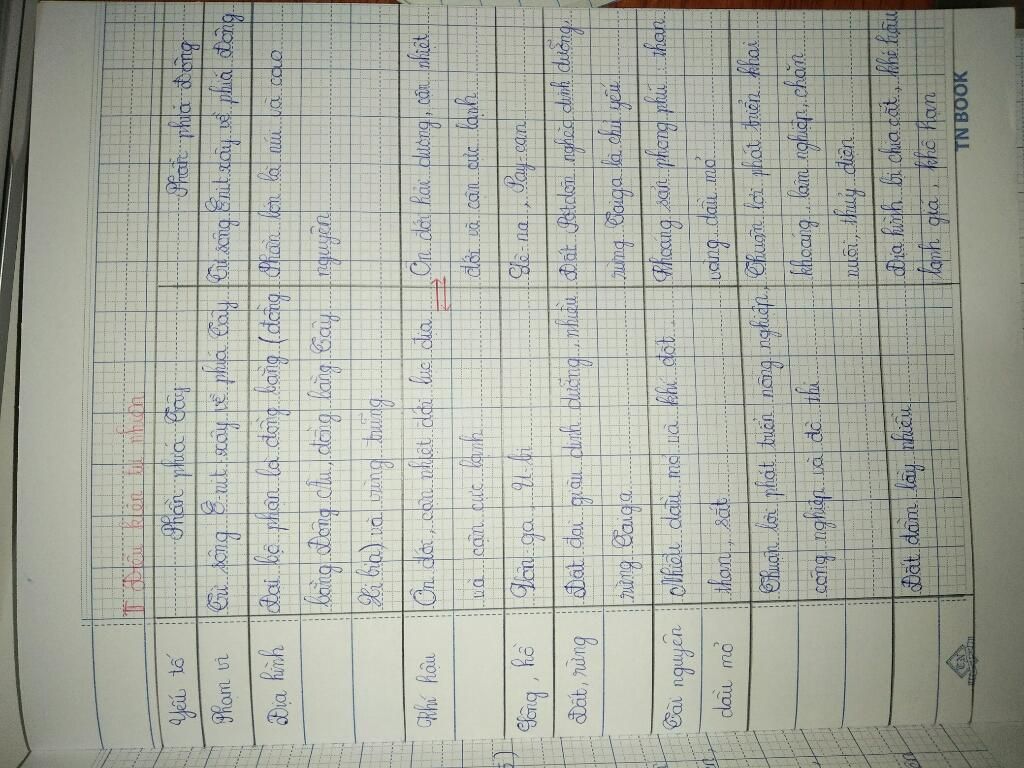 I Điều kiện tự nhiên
Yếu tố Phần phía Tây Phần phía Đông
Phạm vi Từ sông Ê nit xây về phía Tây Từ sông Ênit xây về phía đông
Địa hình Đại bộ phận là đồng bằng (đồng Phần lớn là núi và cao
bằng Đông Âu, đồng bằng Tây nguyên
Xi bia) và vùng trũng
Khí hậu Ôn đới, cận nhiệt đới lục địa Ôn đới hải dương, cận nhiệt
và cận cực lạnh đới và cận cực lạnh
Sông, hồ Vôn ga, Ô bi Lê na, Bay can
Đất, rừng Đất đai giàu dinh dưỡng, nhiều Đất Potdôn nghèo dinh dưỡng.
rừng Taiga rừng Taiga là chủ yếu
Tài nguyên Nhiều dầu mỏ và khí đốt. Khoáng sản phong phú: than
dầu mỏ than, sắt vàng dầu mỏ
Thuận lợi phát triển nông nghiệp, Thuận lợi phát triển khai
công nghiệp và đô thị khoáng, lâm nghiệp, chăn
nuôi, thủy điện
Đất đầm lầy nhiều Địa hình bị chia cắt, khí hậu
lạnh giá, khô hạn
TN BOOK